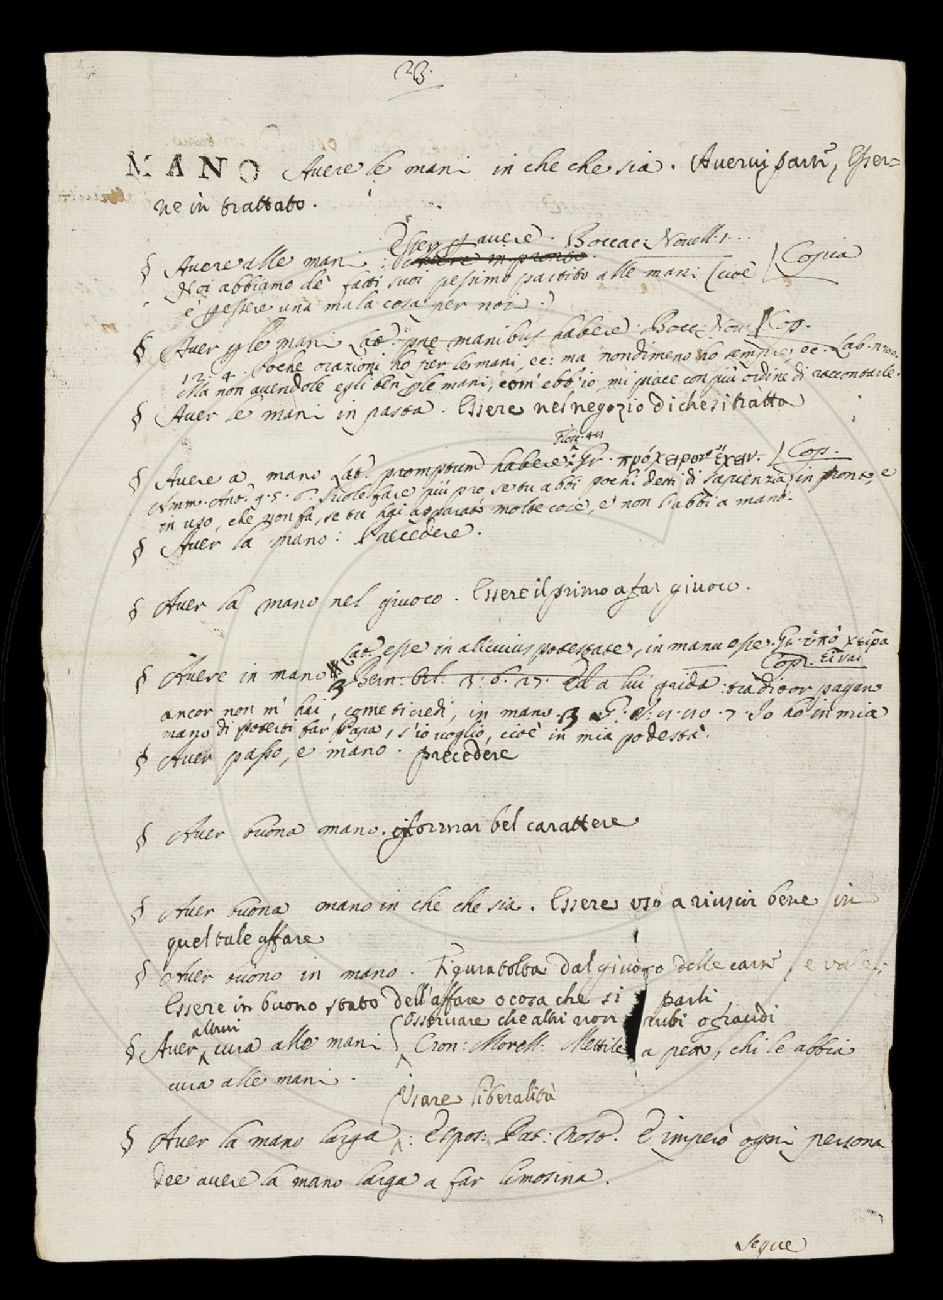 23.
MANO Avere le mani in che che sia. Avervi parte, Esser=
ne in trattato.
Esser p avere. Boccac: Novell. 1.
§ Avere alle mani:
Noi abbiamo de' fatti suoi pessimo partito alle mani (cioè Copia
e' p essere una mala cosa per noi.)
§ Aver p le mani Lat. prae manibus habere. Bocc: Nov. Cop.
1. 2. 4. Poche orazioni ho per le mani, ec: ma nondimeno ho sempre, ec. Lab.
Ma non avendole egli ben p le mani, com' ebb' io, mi piace con più ordine di raccontarle.
§ Aver le mani in pasta. Essere nel negozio di che si tratta
§ Avere a mano Lat. promptum habere. Gr. πρόχειρον ἔχειν. Cop.
Amm. Ant. 9. 5. 6. Suole fare più pro, se tu abbi pochi detti di sapienza, in pronto, e
in uso, che non fa, se tu hai apparato molte cose, e non l'abbi a mano.
§ Aver la mano: Precedere.
§ Aver la mano nel giuoco. Essere il primo a far giuoco.
Lat. esse in alicuius potestate, in manu esse. Gr. ὑπὸ χεῖρα
§ Avere in mano Cop. εἶναι
Bern: Orl. Ed a lui grida: traditor pagano
ancor non m' hai, come ti credi, in mano. Io ho in mia
mano di poterti far Papa, s'io voglio, cioè in mia podestà.
§ Aver passo, e mano. precedere
§ Aver buona mano. formar bel carattere
§ Aver buona mano in che che sia. Essere uso a riuscir bene in
quel tale affare
§ Aver buono in mano. Figura tolta dal giuoco delle carte, e vale;
Essere in buono stato dell'affare o cosa che si parli
altrui Osservare che altri non rubi o graudi
§ Aver cura alle mani Cron: Morell: Mettile a peto, chi le abbia
cura alle mani.
Usare liberalità
§ Aver la mano larga: Espos: Pat: Nost. E imperò ogni persona
dee avere la mano larga a far limosina.
segue